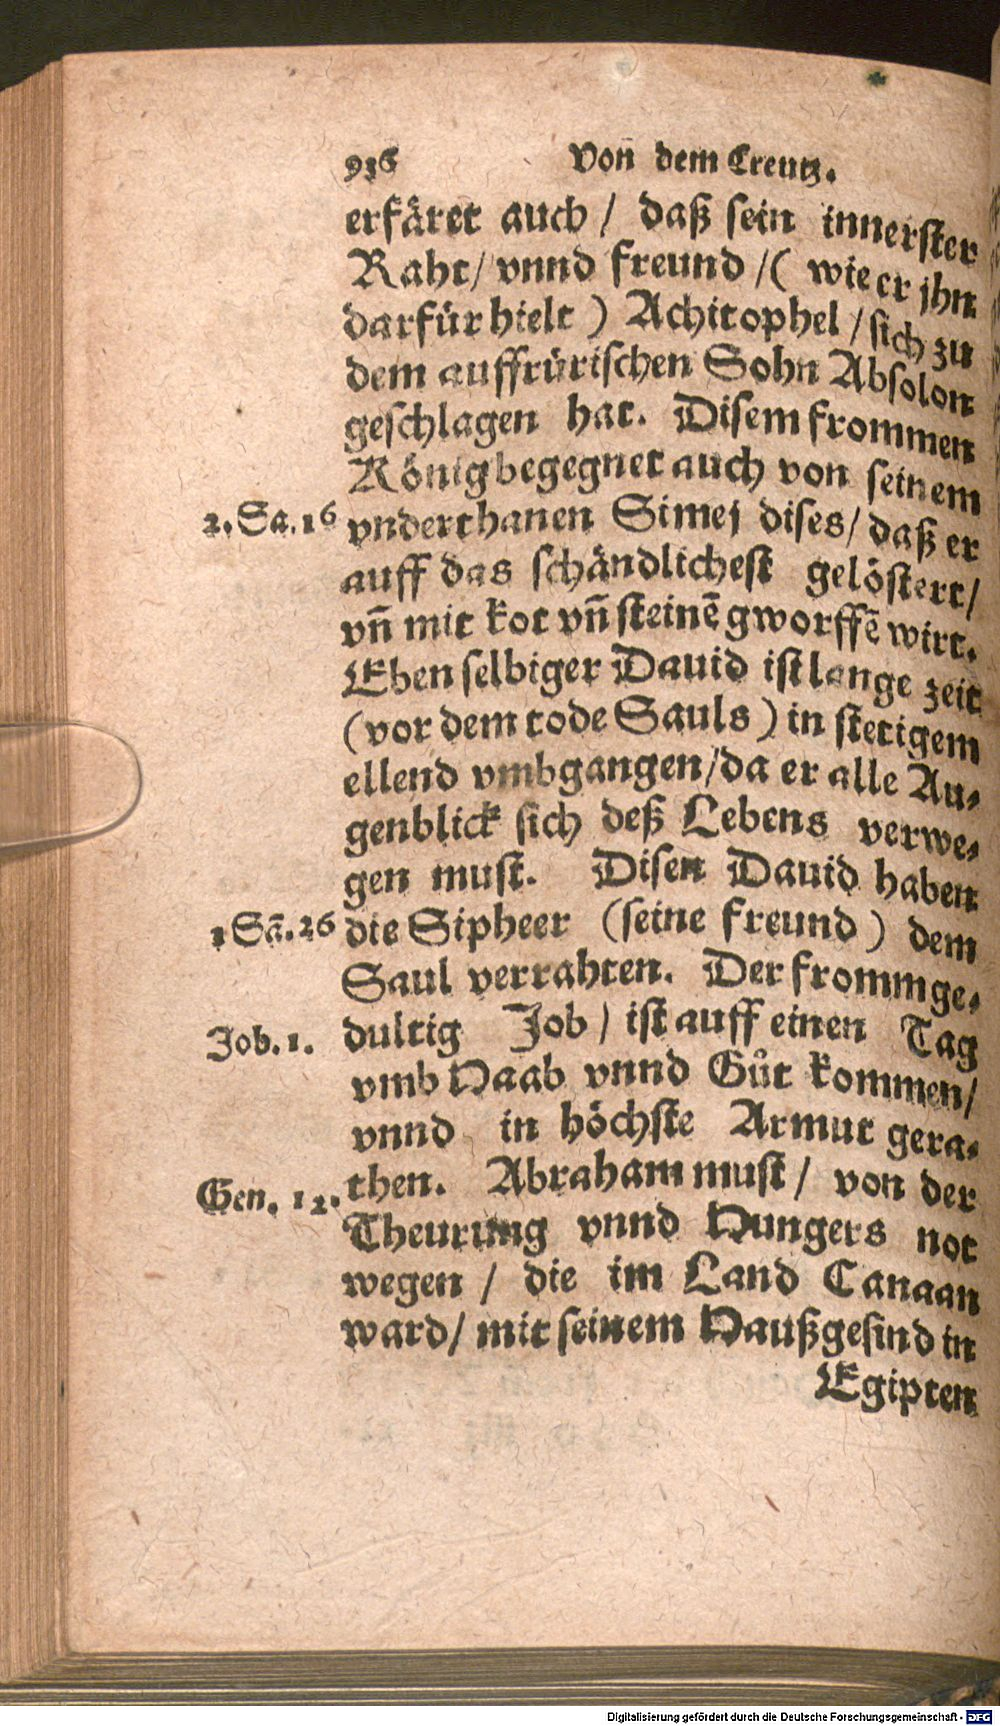 936 Von dem Creutz.
erfäret auch / daß sein innerster
Raht / vnnd freund / ( wie er jhn
darfür hielt ) Achitophel / sich zu
dem auffrürischen Sohn Absolon
geschlagen hat. Disem frommen
König begegnet auch von seinem
2. Sa. 16
vnderthanen Simej dises / daß er
auff das schändlichest gelöstert /
vñ mit kot vñ steinẽ gworffẽ wirt.
Eben selbiger Dauid ist lange zeit
(vor dem tode Sauls ) in stetigem
ellend vmbgangen / da er alle Au-
genblick sich deß Lebens verwe-
gen must. Disen Dauid haben
1 Sã. 26
die Sipheer (seine freund ) dem
Saul verrahten. Der fromm ge-
Job. 1.
dultig Job / ist auff einen Tag
vmb Haab vnnd Gůt kommen /
vnnd in höchste Armut gera-
Gen. 12.
then. Abraham must / von der
Theurung vnnd Hungers not
wegen / die im Land Canaan
ward / mit seinem Haußgesind in
Egipten
Digitalisierung gefördert durch die Deutsche Forschungsgemeinschaft - DFG